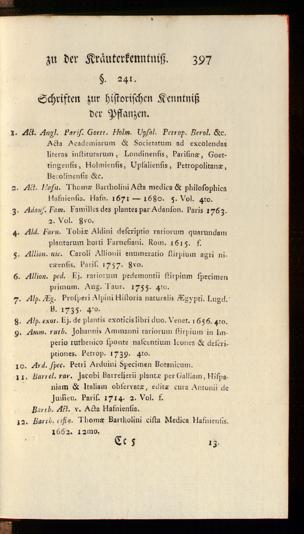 zu der Kräuterkenntniß. 397
§. 241.
Schriften zur historischen Kenntniß
der Pflanzen.
1. Act. Angl. Paris. Goett. Holm. Upsal. Petrop. Berol. &c.
Acta Academiarum & Societatum ad excolendas
literas institutarum, Londinensis, Parisinæ, Goet-
tingensis, Holmiensis, Upsaliensis, Petropolitanæ,
Berolinensis &c.
2. Act. Hafn. Thomæ Bartholini Acta medica & philosophica
Hafniensia. Hafn. 1671 — 1680. 5. Vol. 4to.
3. Adans. Fam. Familles des plantes par Adanson. Paris 1763.
2. Vol. 8vo.
4. Ald. Farn. Tobiæ Aldini descriptio rariorum quarundam
plantarum horti Farnesiani. Rom. 1615. f.
5. Allion. nic. Caroli Allionii enumeratio stirpium agri ni-
cænsis. Paris. 1757. 8vo.
6. Allion. ped. Ej. rariorum pedemontii stirpium specimen
primum. Aug. Taur. 1755. 4to.
7. Alp. Æg. Prosperi Alpini Historia naturalis Ægypti. Lugd.
B. 1735. 4to.
8. Alp. exot. Ej. de plantis exoticis libri duo. Venet. 1656. 4to.
9. Amm. ruth. Johannis Ammanni rariorum stirpium in Im-
perio ruthenico sponte nascentium Icones & descri-
ptiones. Petrop. 1739. 4to.
10. Ard. spec. Petri Arduini Specimen Botanicum.
11. Barrel. rar. Jacobi Barrelierii plantæ per Galliam, Hispa-
niam & Italiam observatæ, editæ cura Antonii de
Jussieu. Paris. 1714. 2. Vol. f.
Barth. Act. v. Acta Hafniensia.
12. Barth. cista. Thomæ Bartholini cista Medica Hafniensis.
1662. 12mo.
Cc 5 13.